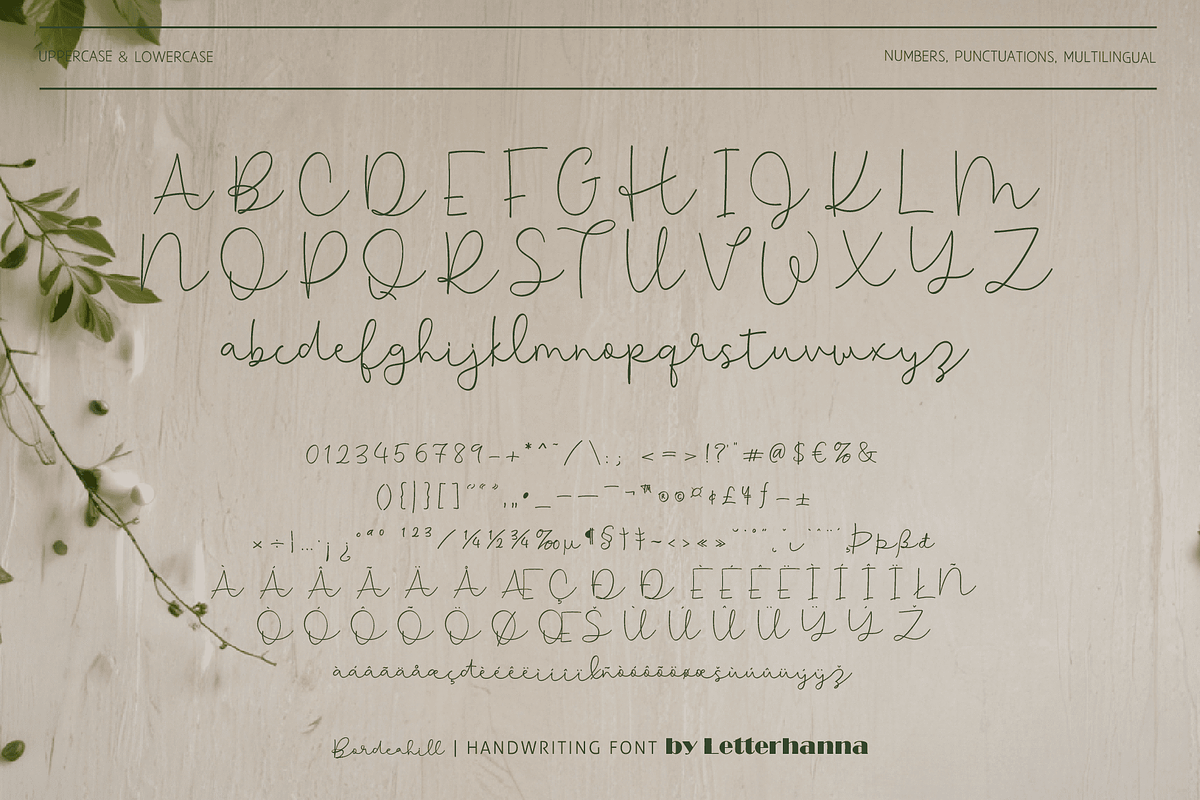 UPPERCASE & LOWERCASE
NUMBERS, PUNCTUATIONS, MULTILINGUAL
A B C D E F G H I J K L M
N O P Q R S T U V W X Y Z
abcdefghijklmnopqrstuvwxyz
0123456789-+*^~/\:; <=>!?'"#@$€%&
(){|}[]“”‘’‚„•_—–¯¬™®©¤¢£¥ƒ−±
×÷¦…·¡¿°ªº ¹²³⁄¼½¾‰µ¶§†‡~‹›«» Þþßđ
À Á Â Ã Ä Å Æ Ç Ð Đ È É Ê Ë Ì Í Î Ï Ł Ñ
Ò Ó Ô Õ Ö Ø Œ Š Ù Ú Û Ü Ÿ Ý Ž
àáâãäåæçđèéêëìíîïłñòóôõöøœšùúûüýÿž
Bordeahill | HANDWRITING FONT by Letterhanna